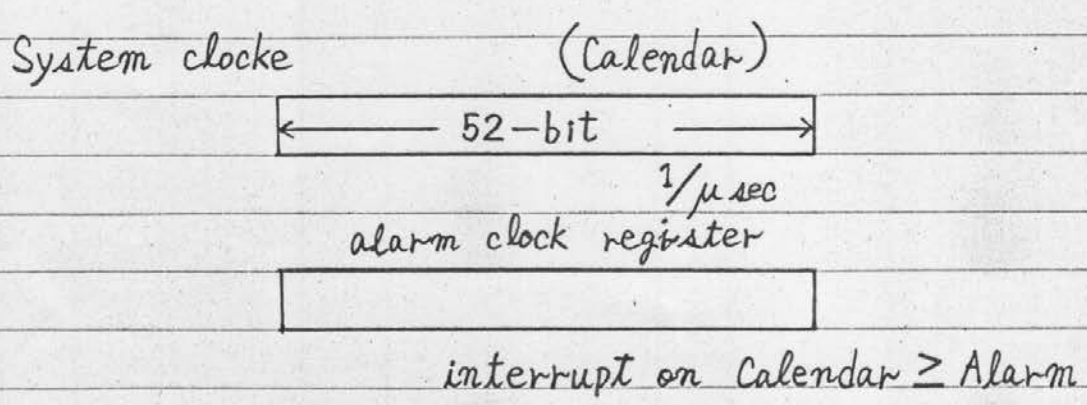 System clocke (Calendar)
52-bit
1/μ sec
alarm clock register
interrupt on Calendar ≥ Alarm